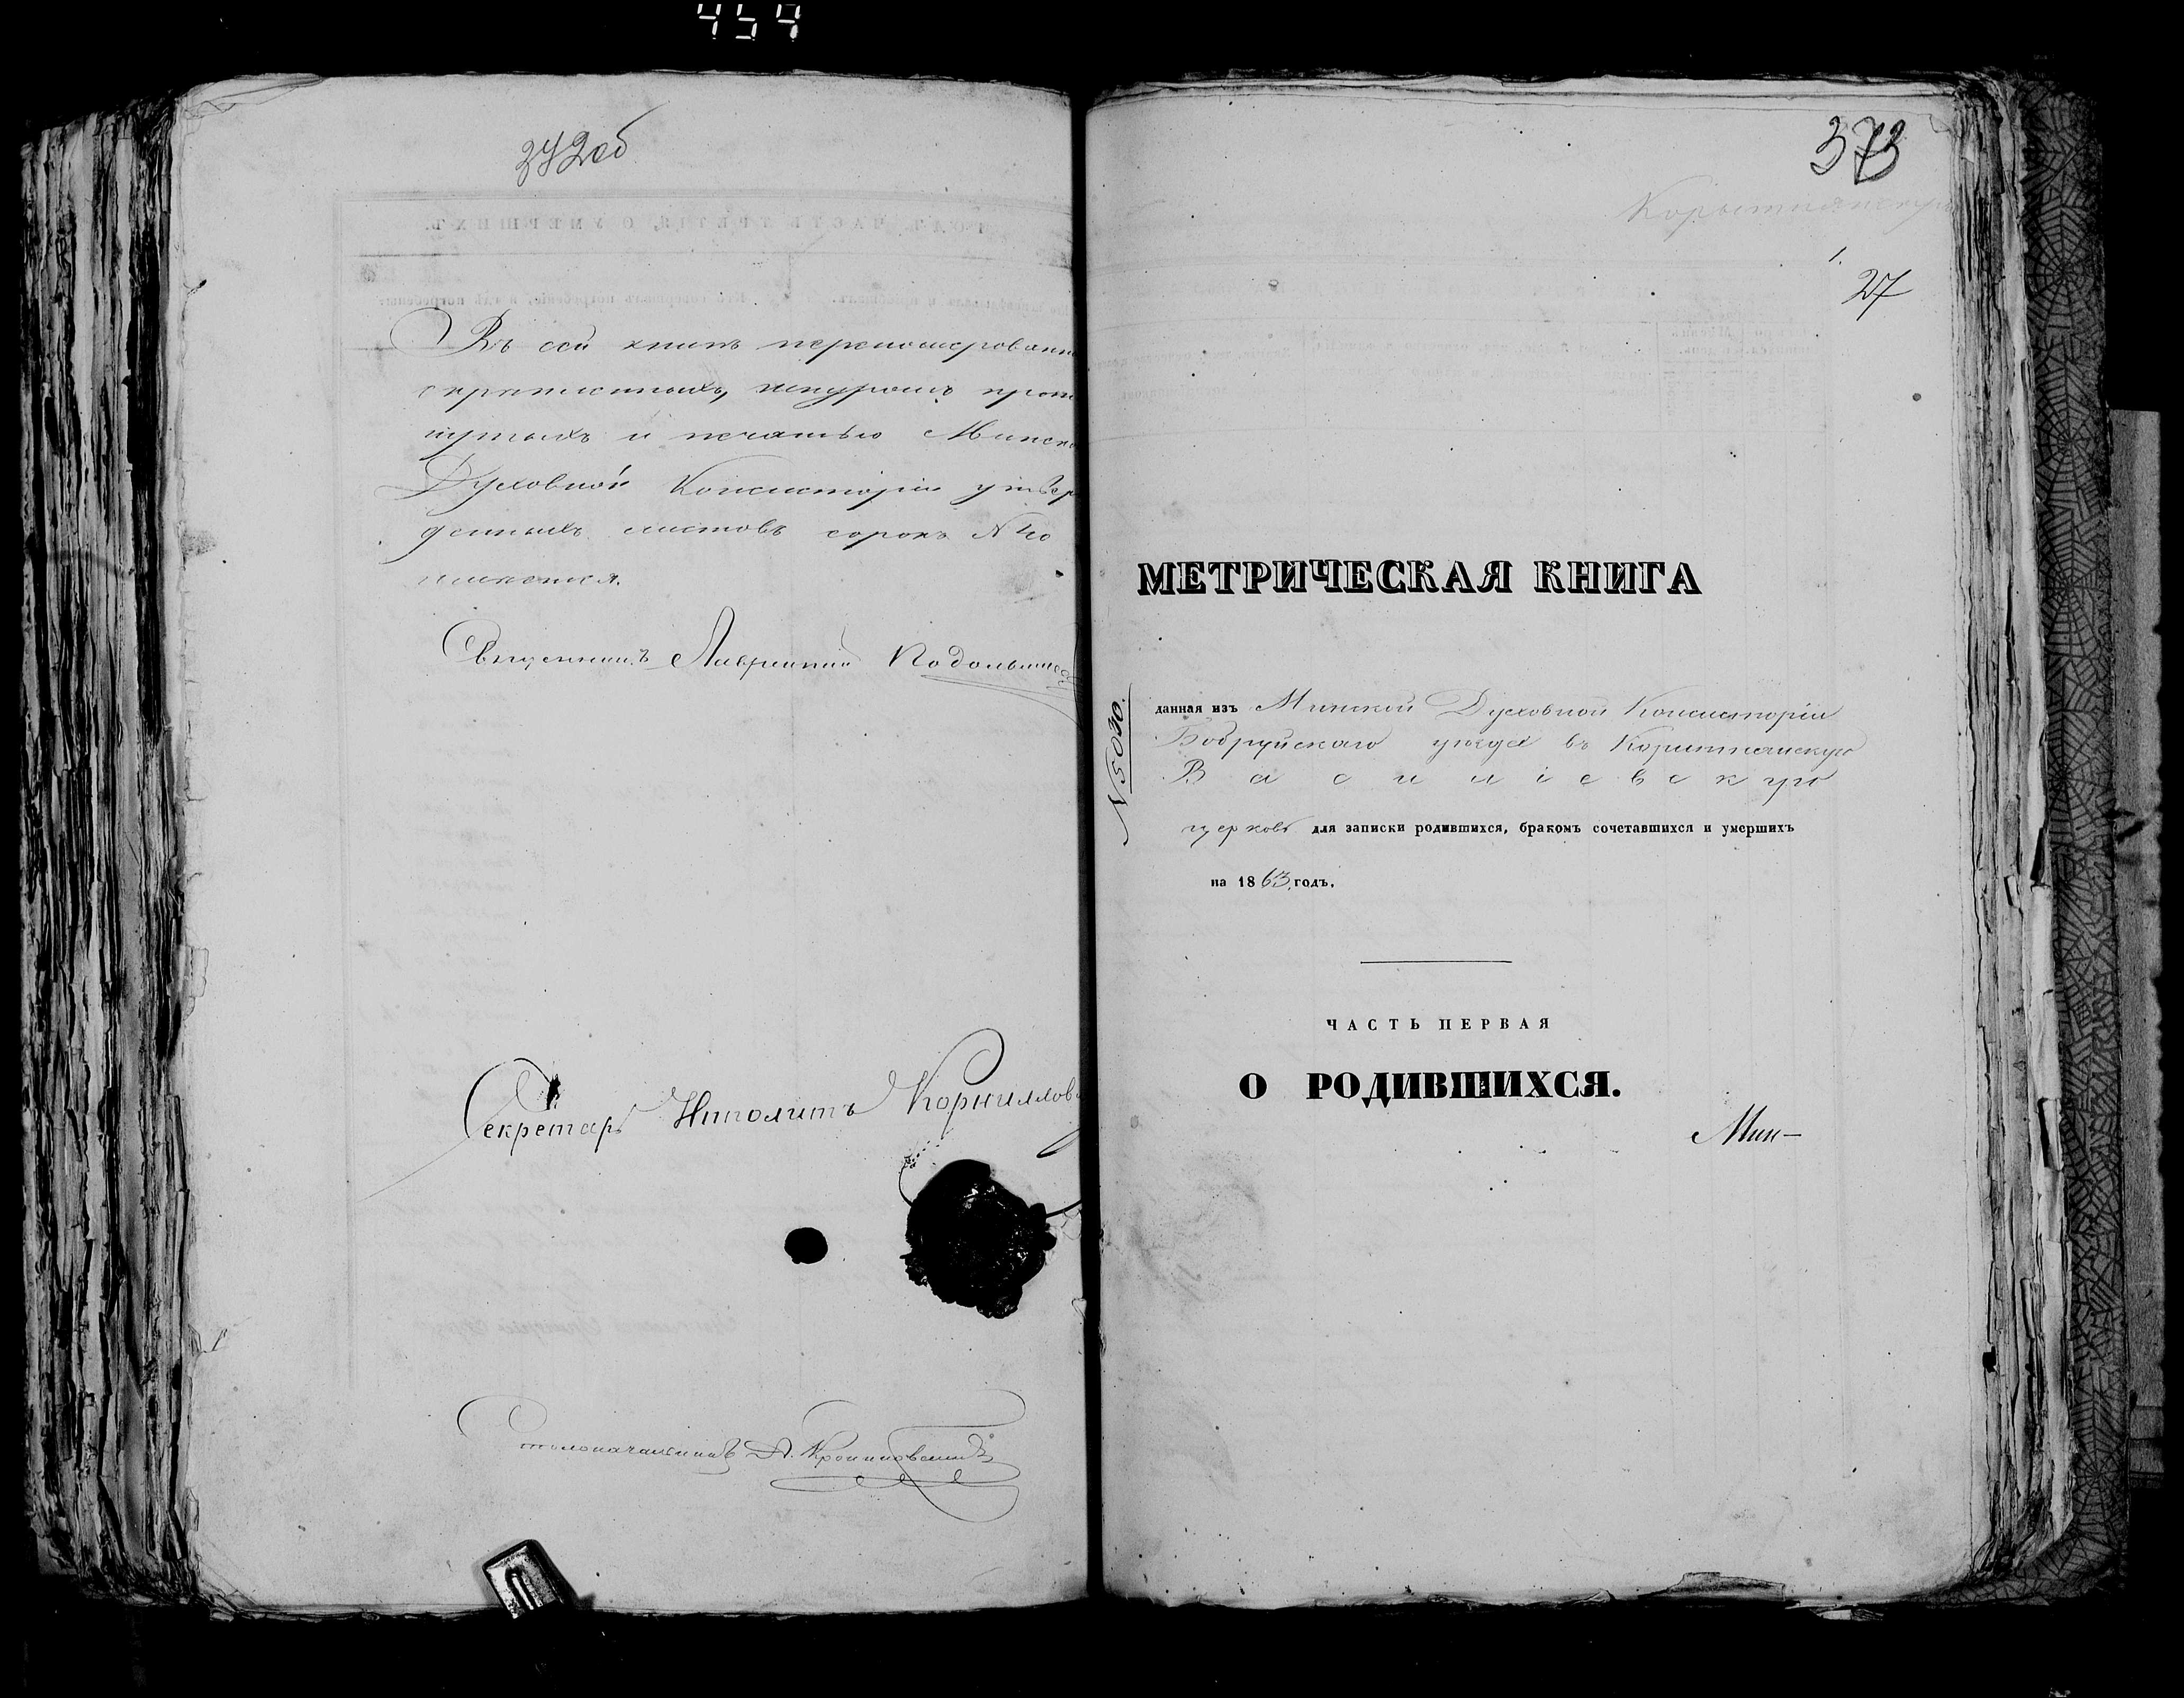 454
372об
Въ сей книгѣ перенумерованн
скрѣпленныхъ, шнуромъ прош
нутыхъ и печатью Минско
Духовной Консисторіи утвер
денныхъ листовъ сорокъ N 40
Священникъ Лаврентій Подольше
Секретарь Иполитъ Корнилов
Столоначальникъ
373
Корытнянскую
1.
27
МЕТРИЧЕСКАЯ КНИГА
N 5030.
данная изъ Минской Духовной Консисторіи
Бобруйскаго уѣзда въ Корытнянскую
Василіевскую
церковь для записки родившихся, бракомъ сочетавшихся и умершихъ
на 1863 годъ.
ЧАСТЬ ПЕРВАЯ
О РОДИВШИХСЯ.
Мин-